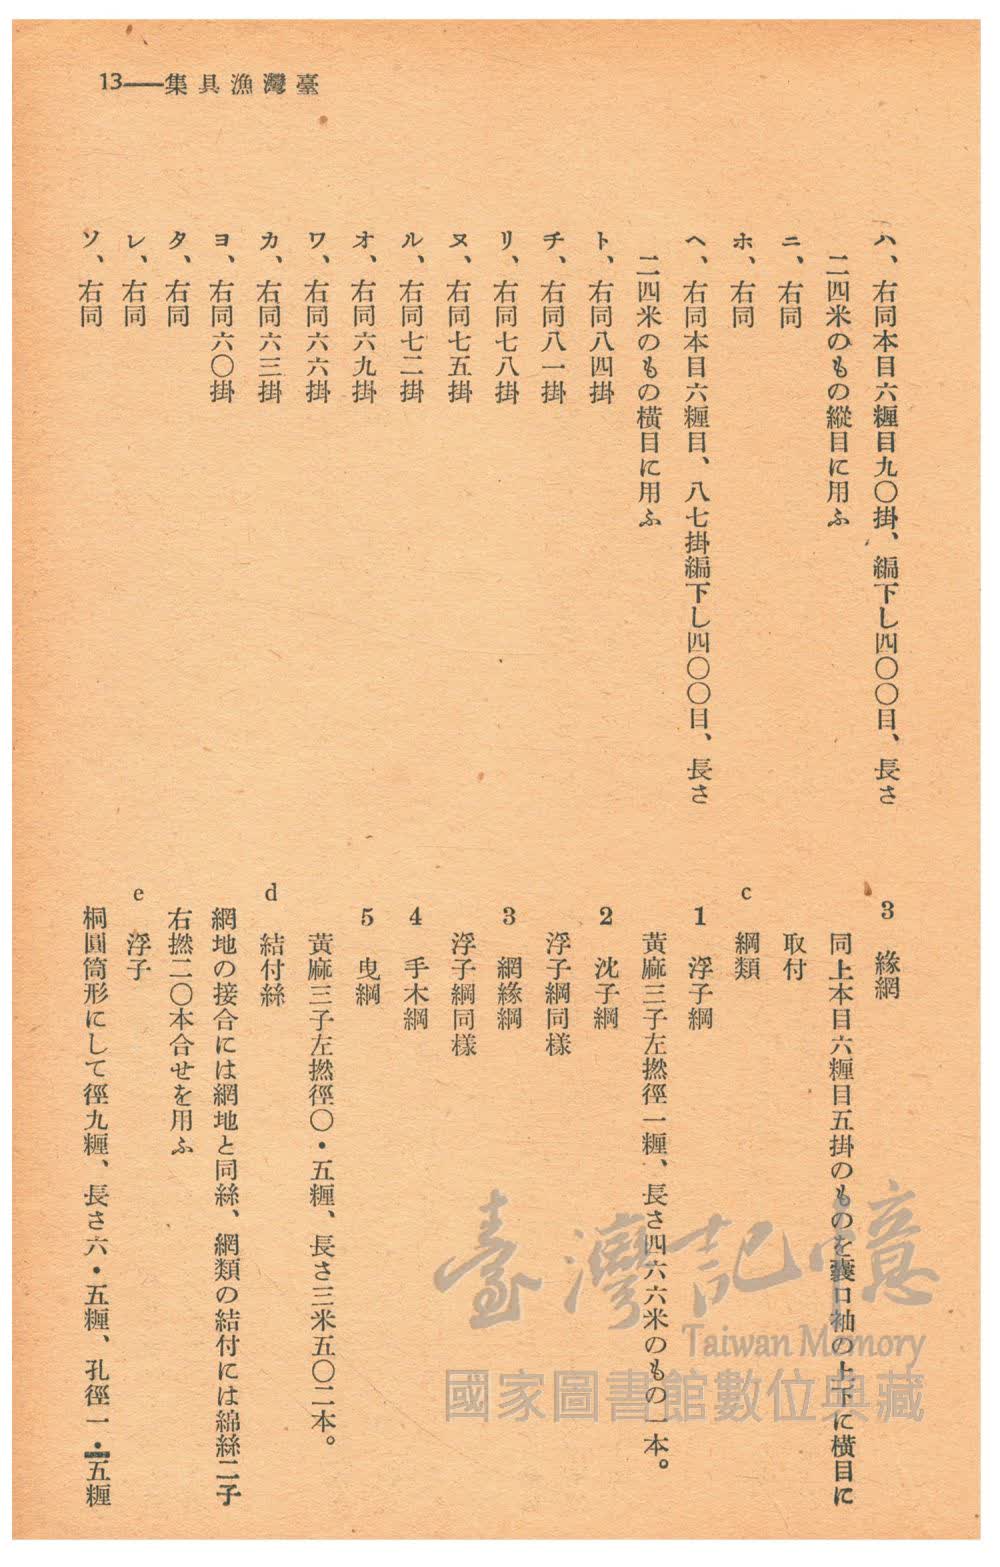 臺灣漁具集——13
ハ、右同本目六糎目九〇掛、編下し四〇〇目、長さ
二四米のもの縱目に用ふ
ニ、右同
ホ、右同
ヘ、右同本目六糎目、八七掛編下し四〇〇目、長さ
二四米のもの橫目に用ふ
ト、右同八四掛
チ、右同八一掛
リ、右同七八掛
ヌ、右同七五掛
ル、右同七二掛
オ、右同六九掛
ワ、右同六六掛
カ、右同六三掛
ヨ、右同六〇掛
タ、右同
レ、右同
ソ、右同
3 緣網
同上本目六糎目五掛のものを囊口袖の上下に橫目に
取付
c 綱類
1 浮子綱
黃麻三子左撚徑一糎、長さ四六六米のもの一本。
2 沈子綱
浮子綱同樣
3 網緣綱
浮子綱同樣
4 手木綱
5 曳綱
黃麻三子左撚徑〇・五糎、長さ三米五〇二本。
d 結付絲
網地の接合には網地と同絲、網類の結付には綿絲二子
右撚二〇本合せを用ふ
e 浮子
桐圓筒形にして徑九糎、長さ六・五糎、孔徑一・五糎
臺灣記憶
Taiwan Memory
國家圖書館數位典藏